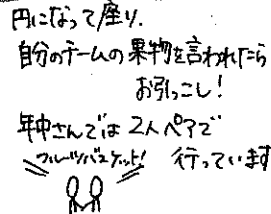 円になって座り、
自分のチームの果物を言われたら
お引っこし!
年中さんでは2人ペアで
フルーツバスケット!
行っています